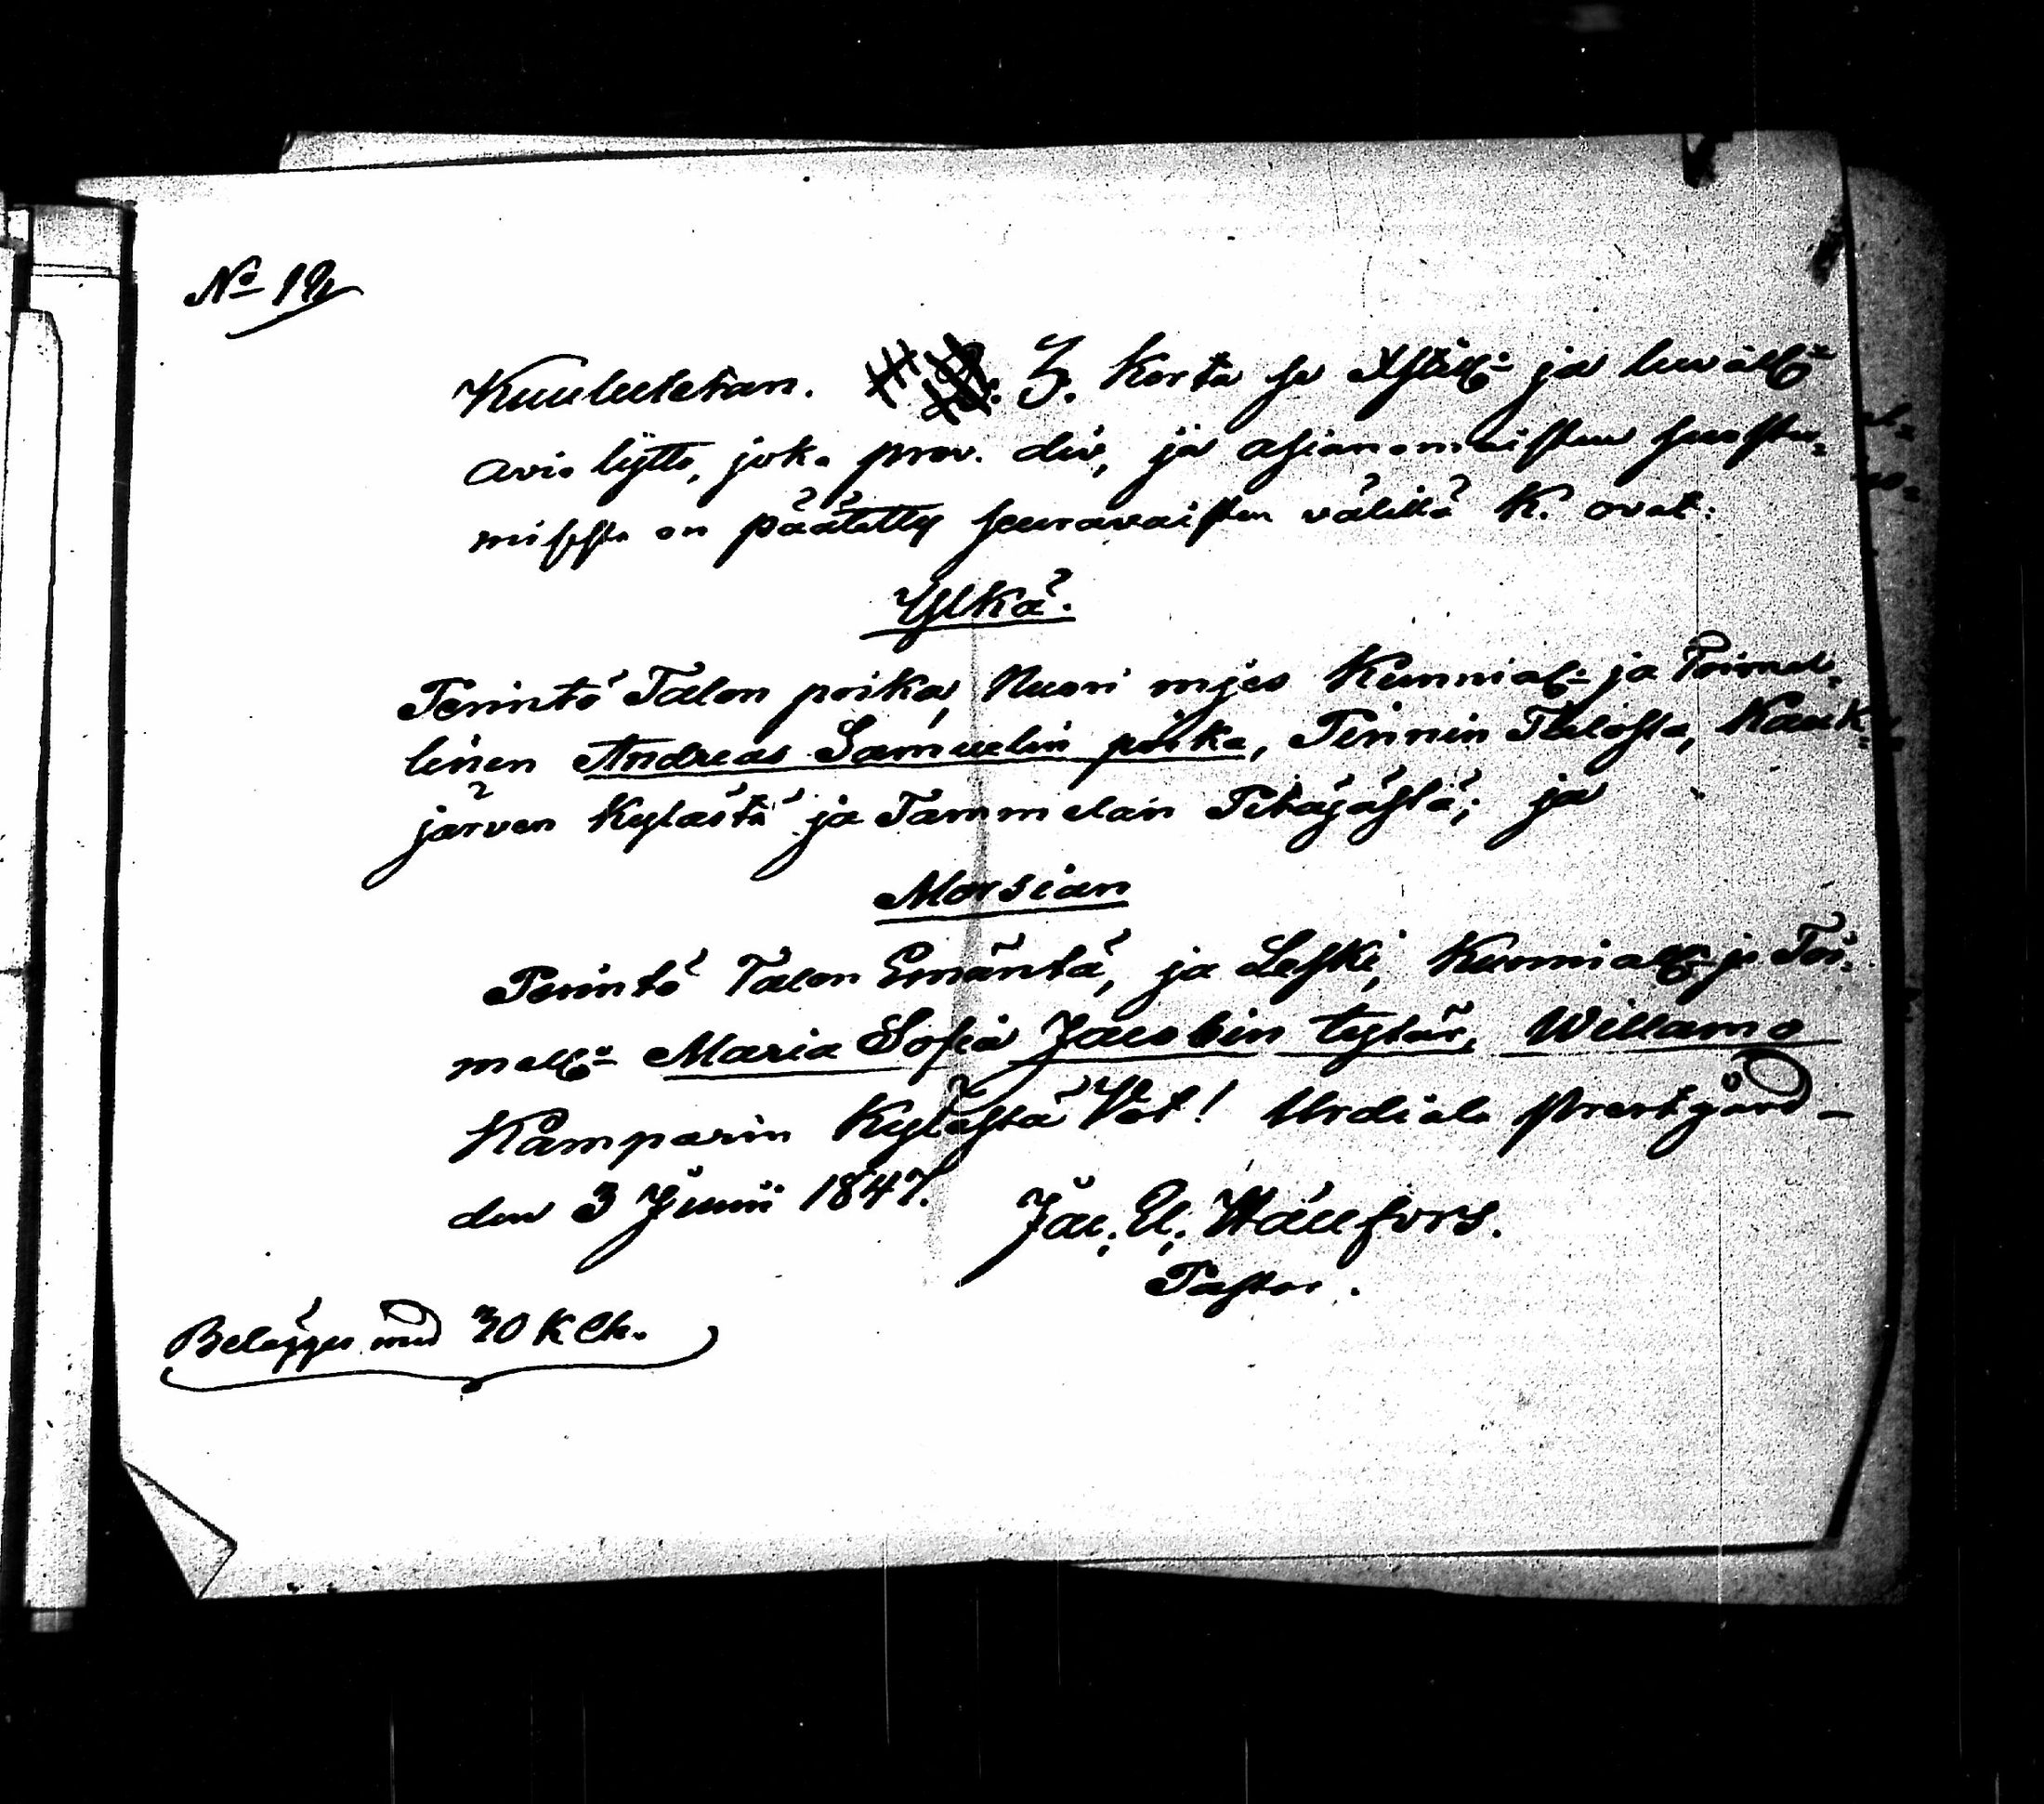 No 19
Kuulutetan. 3. Kerta se Xstill: ja luvall:
avio lijtto, joka prov. div, ja asianomaisten suostu=
misesta on päätetty seuravaisten välillä K. ovat:
Ylkä.
Perintö Talon poika, Nuori mjes Kunnial: ja Toimel=
linen Andreas Samuelin poika, Pinnin Talosta, Kauk=
järven Kylästä ja Tammelan Pitäjästä; ja
Morsian
Perintö Talon Emäntä, ja Leski, Kunniall: ja Toi=
mell: Maria Sofia Jacobin tytär, Willamo
Kamparin Kylästä Vot! Urdiala Prestgård
den 3 Junii 1847.
Jac. El. Hällfors.
Pastor.
Belägges med 30 K Ch.